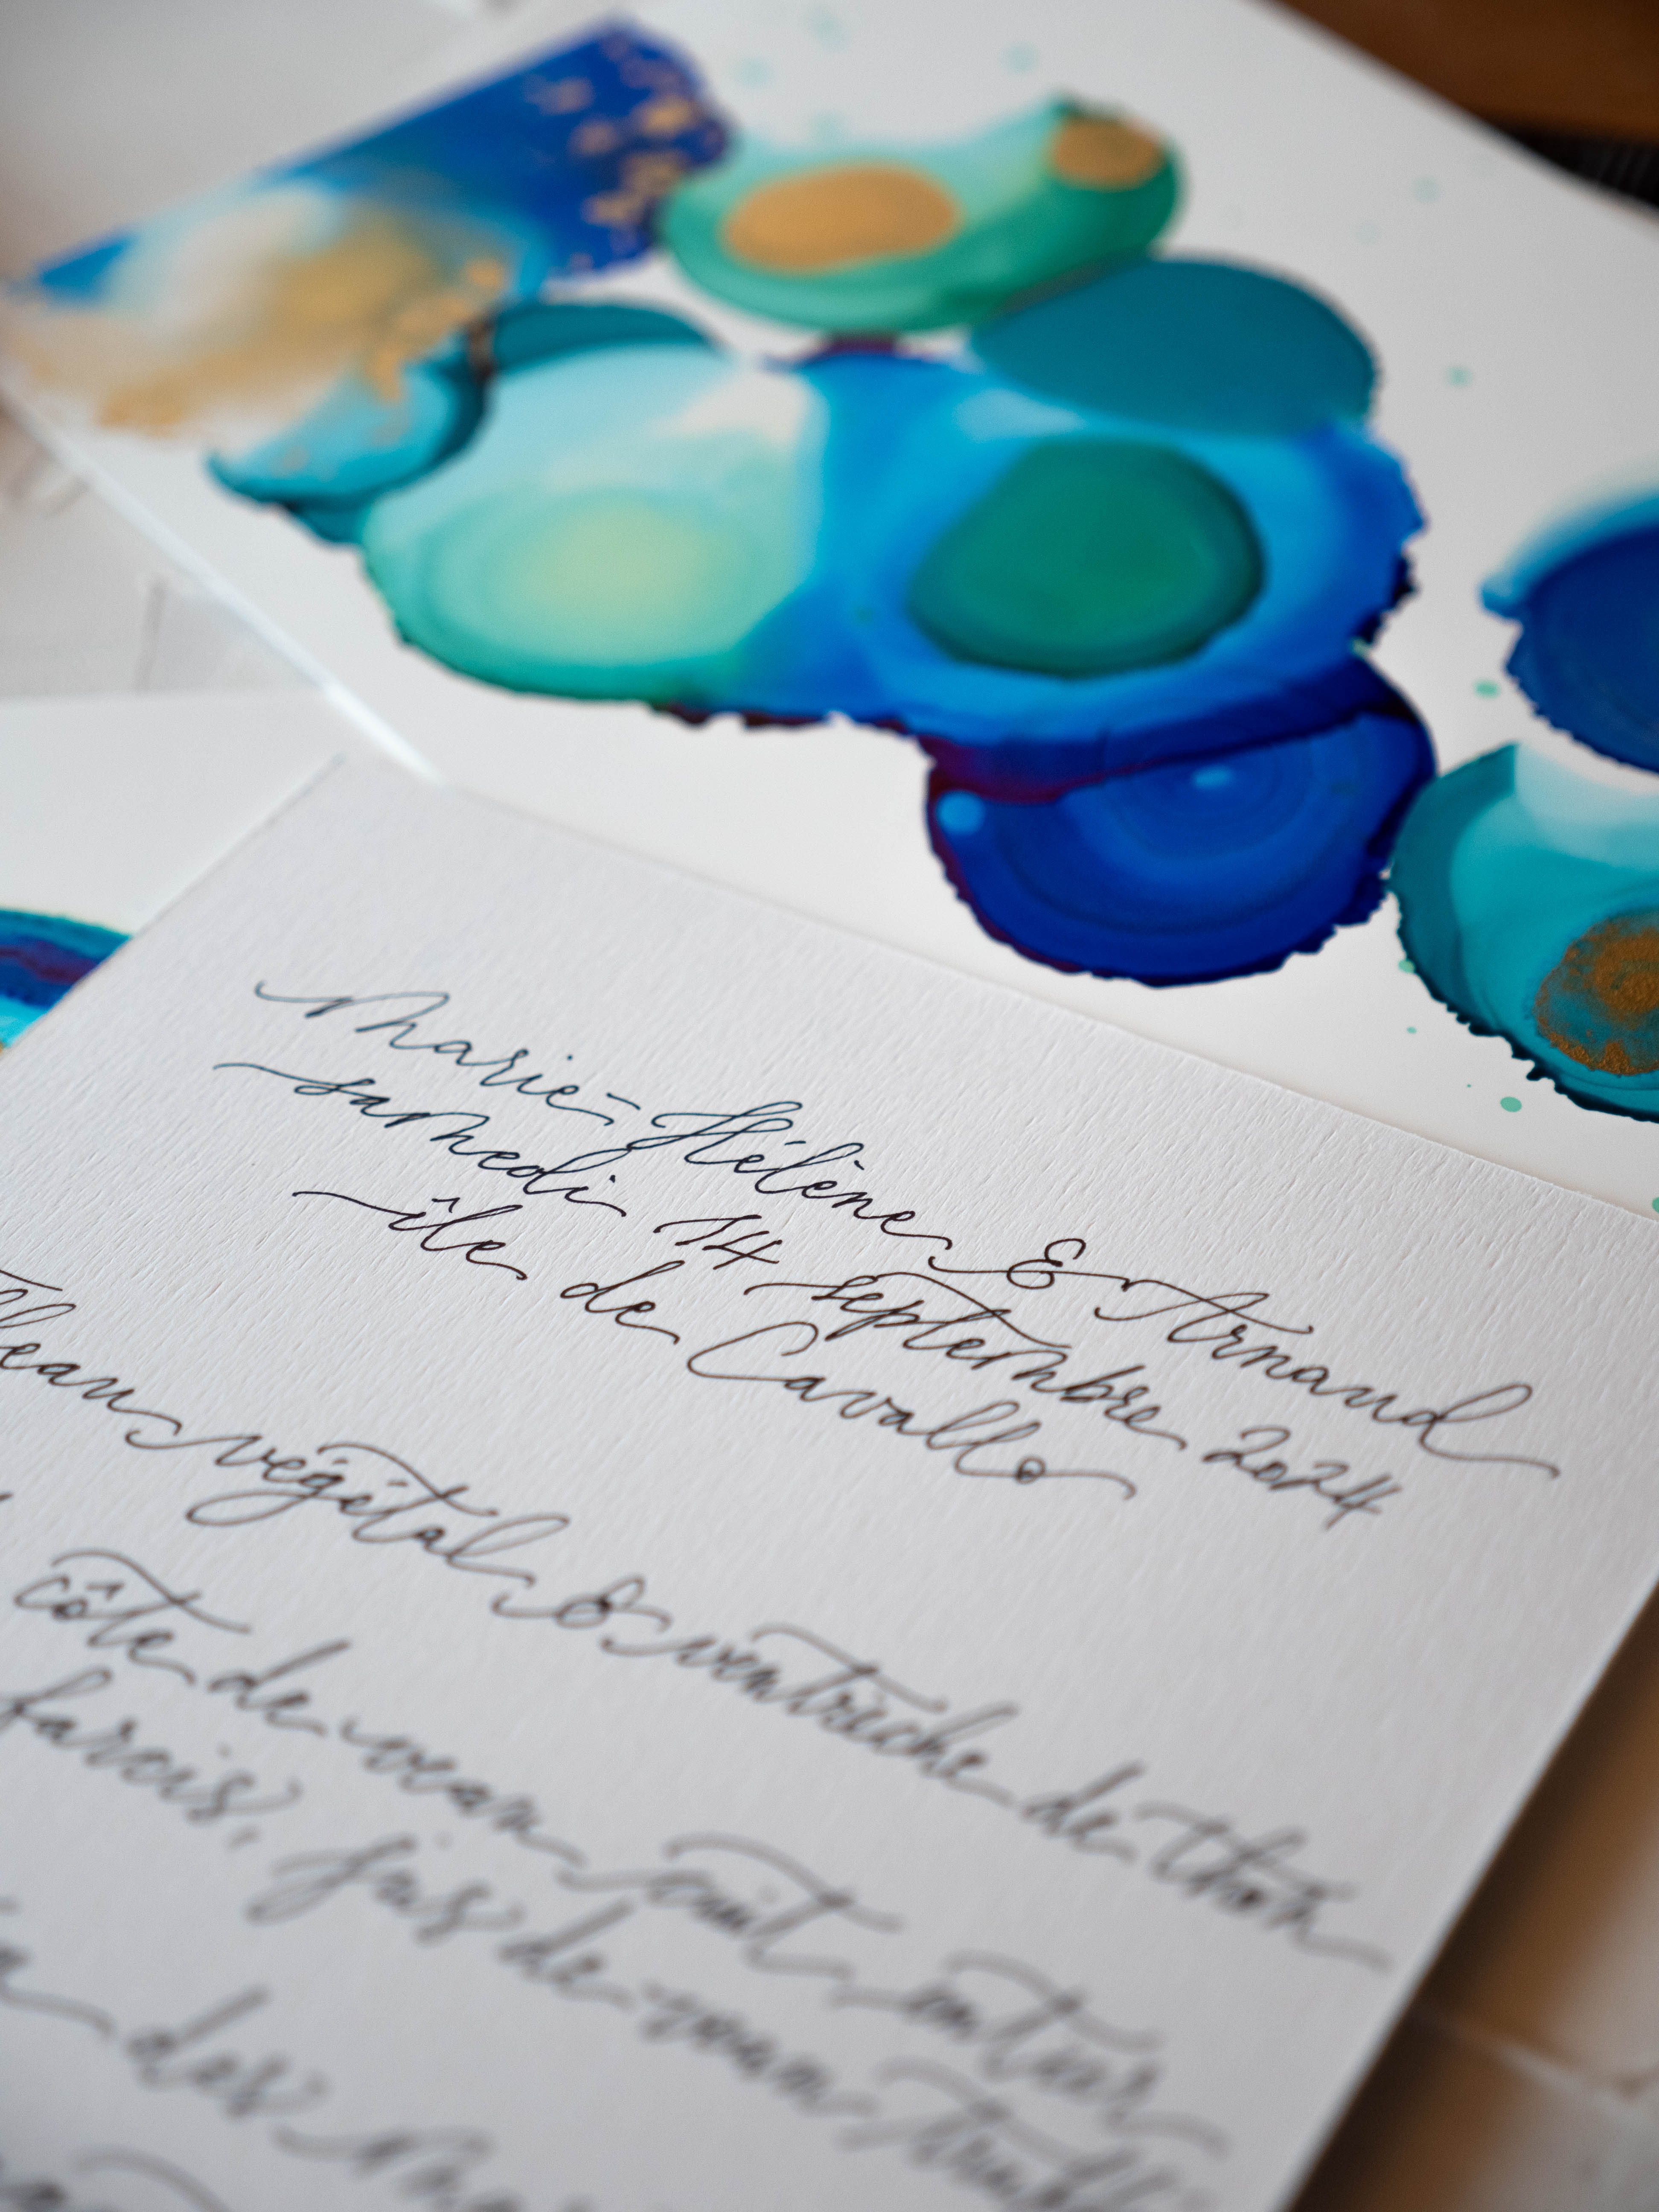 Marie-Hélène & Arnaud
samedi 14 septembre 2024
île de Cavallo
végétal & ventrèche de thon
côte de veau cuit entier
farcis, jus de veau
des